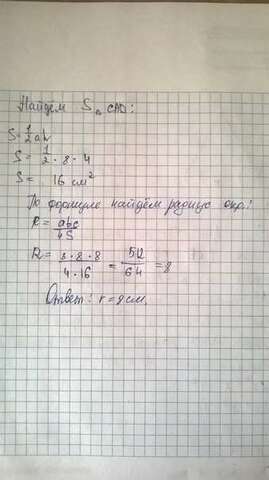 Найдём S△ CAD:
S = 1/2 ah
S = 1/2 · 8 · 4
S = 16 см²
По формуле найдём радиус окр.:
R = abc/4S
R = 8 · 8 · 8 / 4 · 16 = 512/64 = 8
Ответ: r = 8 см.